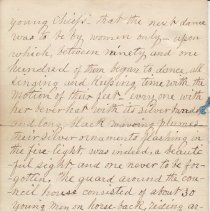 young Chiefs. That the next dance
was to be by women only — upon
which, between ninety and one
hundred of them began to dance, all
singing and keeping time with the
motion of their feet — every one with
her bever hat with its silver band
and long black waving plumes
their silver ornaments flashing in
the fire light was indeed a beauti
ful sight and one never to be for-
gotten. The guard around the cou-
ncil house consisted of about 30
young men on horse back, riding ar-